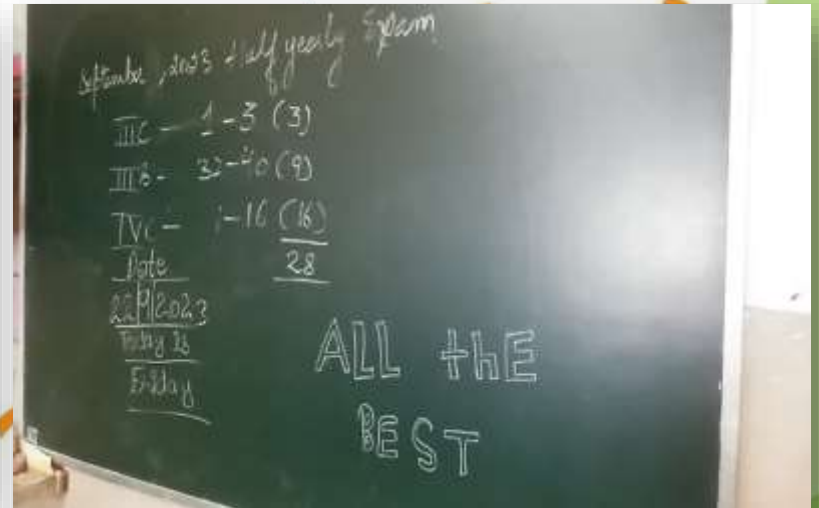 September, 2023 Half yearly Exam
IIIC - 1-3 (3)
IIIB - 32-40 (9)
IVC - 1-16 (16)
28
Date
22/9/2023
Today is
Friday
ALL thE
BEST